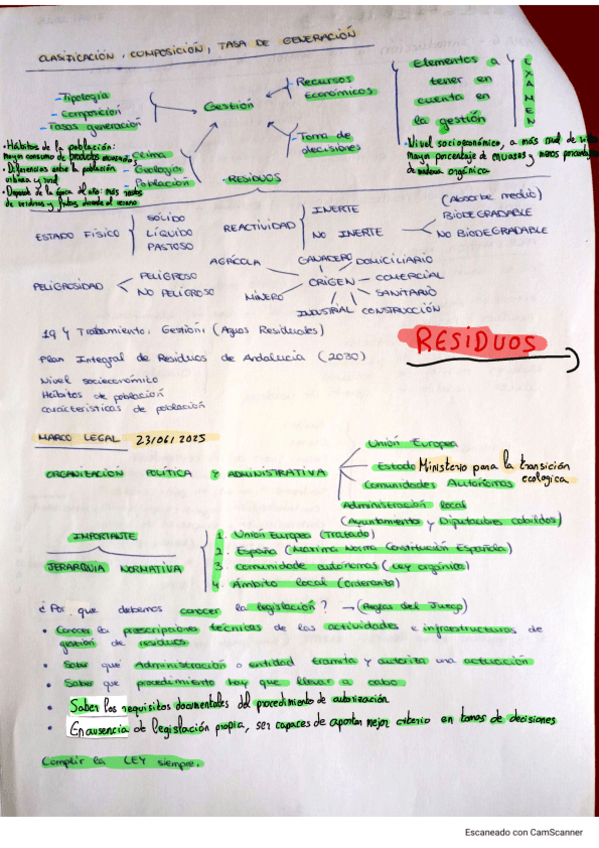 CLASIFICACIÓN, COMPOSICIÓN, TASA DE GENERACIÓN
- Tipología
- Composición
- Tasas generación
- Clima
- Geología
- Población
Gestión
Recursos Económicos
Toma de decisiones
Elementos a tener en cuenta en la gestión
EXAMEN
• Hábitos de la población:
mayor consumo de productos
• Diferencias entre la población
urbana y rural
• Depende de la época del año: más restos
de verduras y frutas durante el verano
• Nivel socioeconómico, a más nivel de vida
Mayor porcentaje de envases y menos porcentaje
de materia orgánica
RESIDUOS
ESTADO FÍSICO
SÓLIDO
LÍQUIDO
PASTOSO
REACTIVIDAD
INERTE
NO INERTE
(Absorbe medio)
BIODEGRADABLE
NO BIODEGRADABLE
PELIGROSIDAD
PELIGROSO
NO PELIGROSO
ORIGEN
AGRÍCOLA
GANADERO
DOMICILIARIO
COMERCIAL
SANITARIO
CONSTRUCCIÓN
INDUSTRIAL
MINERO
19 Y Tratamiento, Gestión, (Aguas Residuales)
Plan Integral de Residuos de Andalucía (2030)
Nivel socioeconómico
Hábitos de población
características de población
RESIDUOS
MARCO LEGAL 23/06/2025
ORGANIZACIÓN POLÍTICA Y ADMINISTRATIVA
Unión Europea
Estado Ministerio para la transición ecologica
Comunidades Autónomas
Administración local
(Ayuntamiento y Diputaciones cabildos)
IMPORTANTE
JERARQUIA NORMATIVA
1. Unión Europea (Tratado)
2. España (Maxima Norma Constitución Española)
3. comunidade autónomas (Ley orgánica)
4. Ámbito local (Ordenanza)
¿Por que debemos conocer la legislación? → (Reglas del Juego)
• Conocer la prescripciones técnicas de las actividades e infraestructuras de
gestión de residuos
• Saber que Administración o entidad tramita y autoriza una actuación
• Saber que procedimiento hay que llevar a cabo
• Saber los requisitos documentales del procedimiento de autorización
• En ausencia de legislación propia, ser capaces de aportar mejor criterio en tomas de decisiones
Complir la LEY siempre.
Escaneado con CamScanner